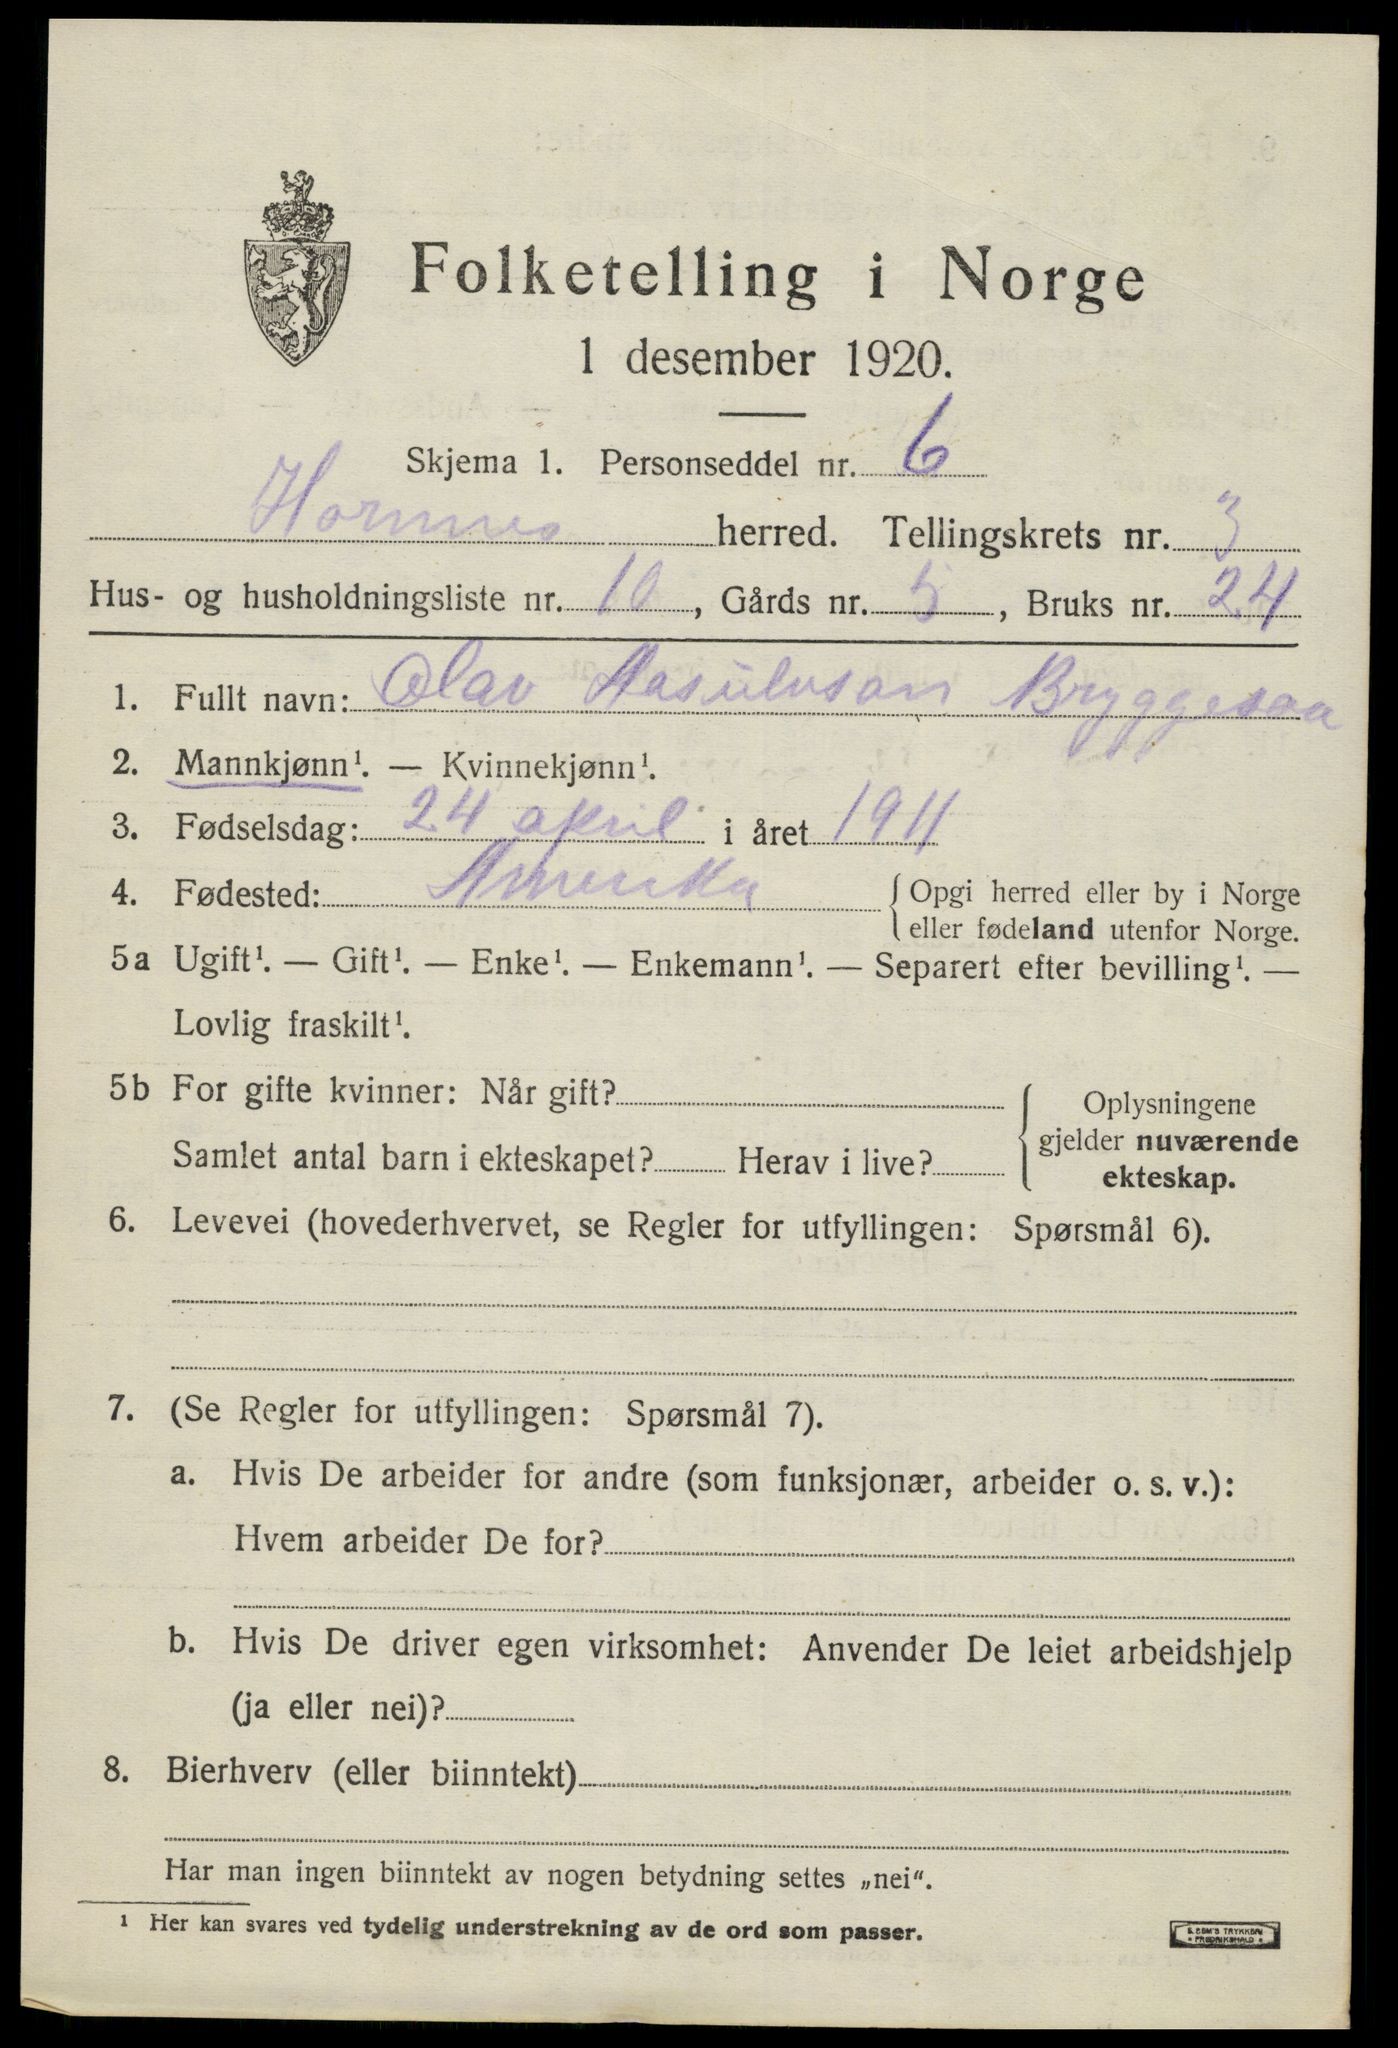 Folketelling i Norge
1 desember 1920.
Skjema 1. Personseddel nr. 6
Hornnes herred. Tellingskrets nr. 3
Hus- og husholdningsliste nr. 10, Gårds nr. 5, Bruks nr. 24
1. Fullt navn: Olav Aasulvson Bryggesaa
2. Mannkjønn¹. — Kvinnekjønn¹.
3. Fødselsdag: 24 april i året 1911
4. Fødested: Amerika { Opgi herred eller by i Norge
eller fødeland utenfor Norge.
5a Ugift¹. — Gift¹. — Enke¹. — Enkemann¹. — Separert efter bevilling¹. —
Lovlig fraskilt¹.
5b For gifte kvinner: Når gift?
Samlet antal barn i ekteskapet? Herav i live?
Oplysningene
gjelder nuværende
ekteskap.
6. Levevei (hovederhvervet, se Regler for utfyllingen: Spørsmål 6).
7. (Se Regler for utfyllingen: Spørsmål 7).
a. Hvis De arbeider for andre (som funksjonær, arbeider o. s. v.):
Hvem arbeider De for?
b. Hvis De driver egen virksomhet: Anvender De leiet arbeidshjelp
(ja eller nei)?
8. Bierhverv (eller biinntekt)
Har man ingen biinntekt av nogen betydning settes „nei“.
¹ Her kan svares ved tydelig understrekning av de ord som passer.
TRYKKERI
• FREDRIKSHALD •